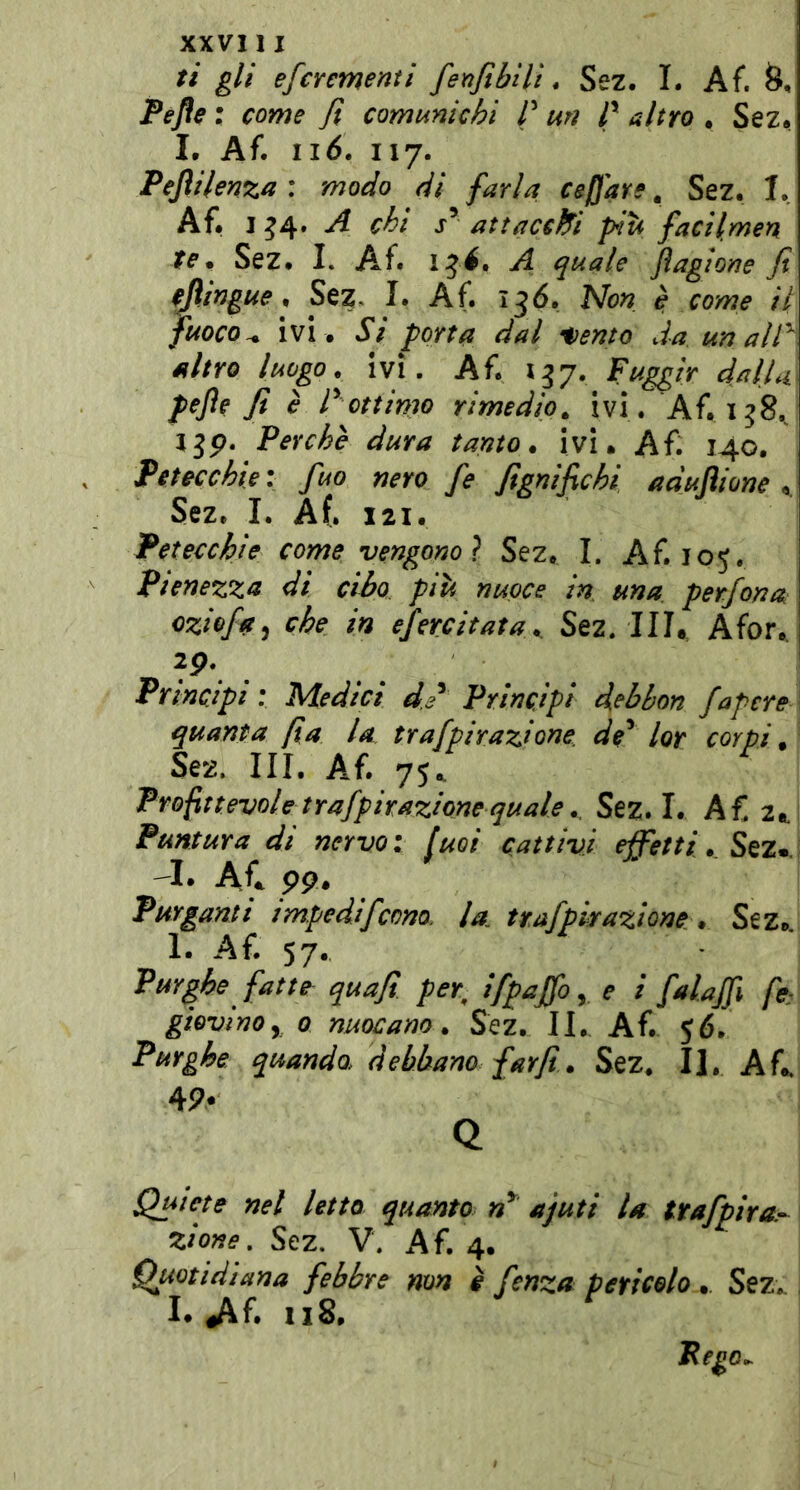 XXVIII
ti gli eſcrementi ſenſibili. Sez. I. Af. 8.
Peſte: come ſi comunichi l' un l' altro. Sez.
I. Af. 116. 117.
Peſtilenza: modo di farla ceſſare. Sez. I.
Af. 134. A chi s' attacchi più facilmen
te. Sez. I. Af. 136. A quale ſtagione ſi
eſtingue. Sez. I. Af. 136. Non è come il
fuoco. ivi. Si porta dal vento da un all'
altro luogo. ivi. Af. 137. Fuggir dalla
peſte ſi è l' ottimo rimedio. ivi. Af. 138.
139. Perchè dura tanto. ivi. Af. 140.
Petecchie: ſuo nero ſe ſignifichi aduſtione.
Sez. I. Af. 121.
Petecchie come vengono? Sez. I. Af. 105.
Pienezza di cibo più nuoce in una perſona
ozioſa, che in eſercitata. Sez. III. Afor.
29.
Principi: Medici de' Principi debbon ſapere
quanta ſia la traſpirazione de' lor corpi.
Sez. III. Af. 75.
Profittevole traſpirazione quale. Sez. I. Af. 2.
Puntura di nervo: ſuoi cattivi effetti. Sez.
I. Af. 99.
Purganti impediſcono la traſpirazione. Sez.
I. Af. 57.
Purghe fatte quaſi per iſpaſſo, e i ſalaſſi ſe
giovino, o nuocano. Sez. II. Af. 56.
Purghe quando debbano farſi. Sez. II. Af.
49.
Q
Quiete nel letto quanto n' ajuti la traſpira-
zione. Sez. V. Af. 4.
Quotidiana febbre non è ſenza pericolo. Sez.
I. Af. 118.
Rego-